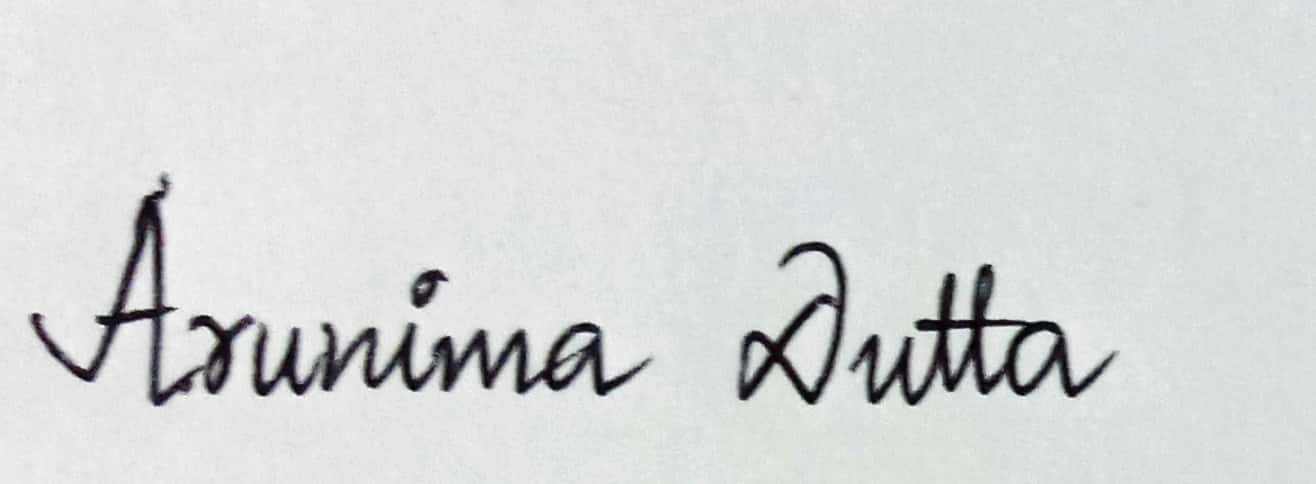 Arunima Dutta